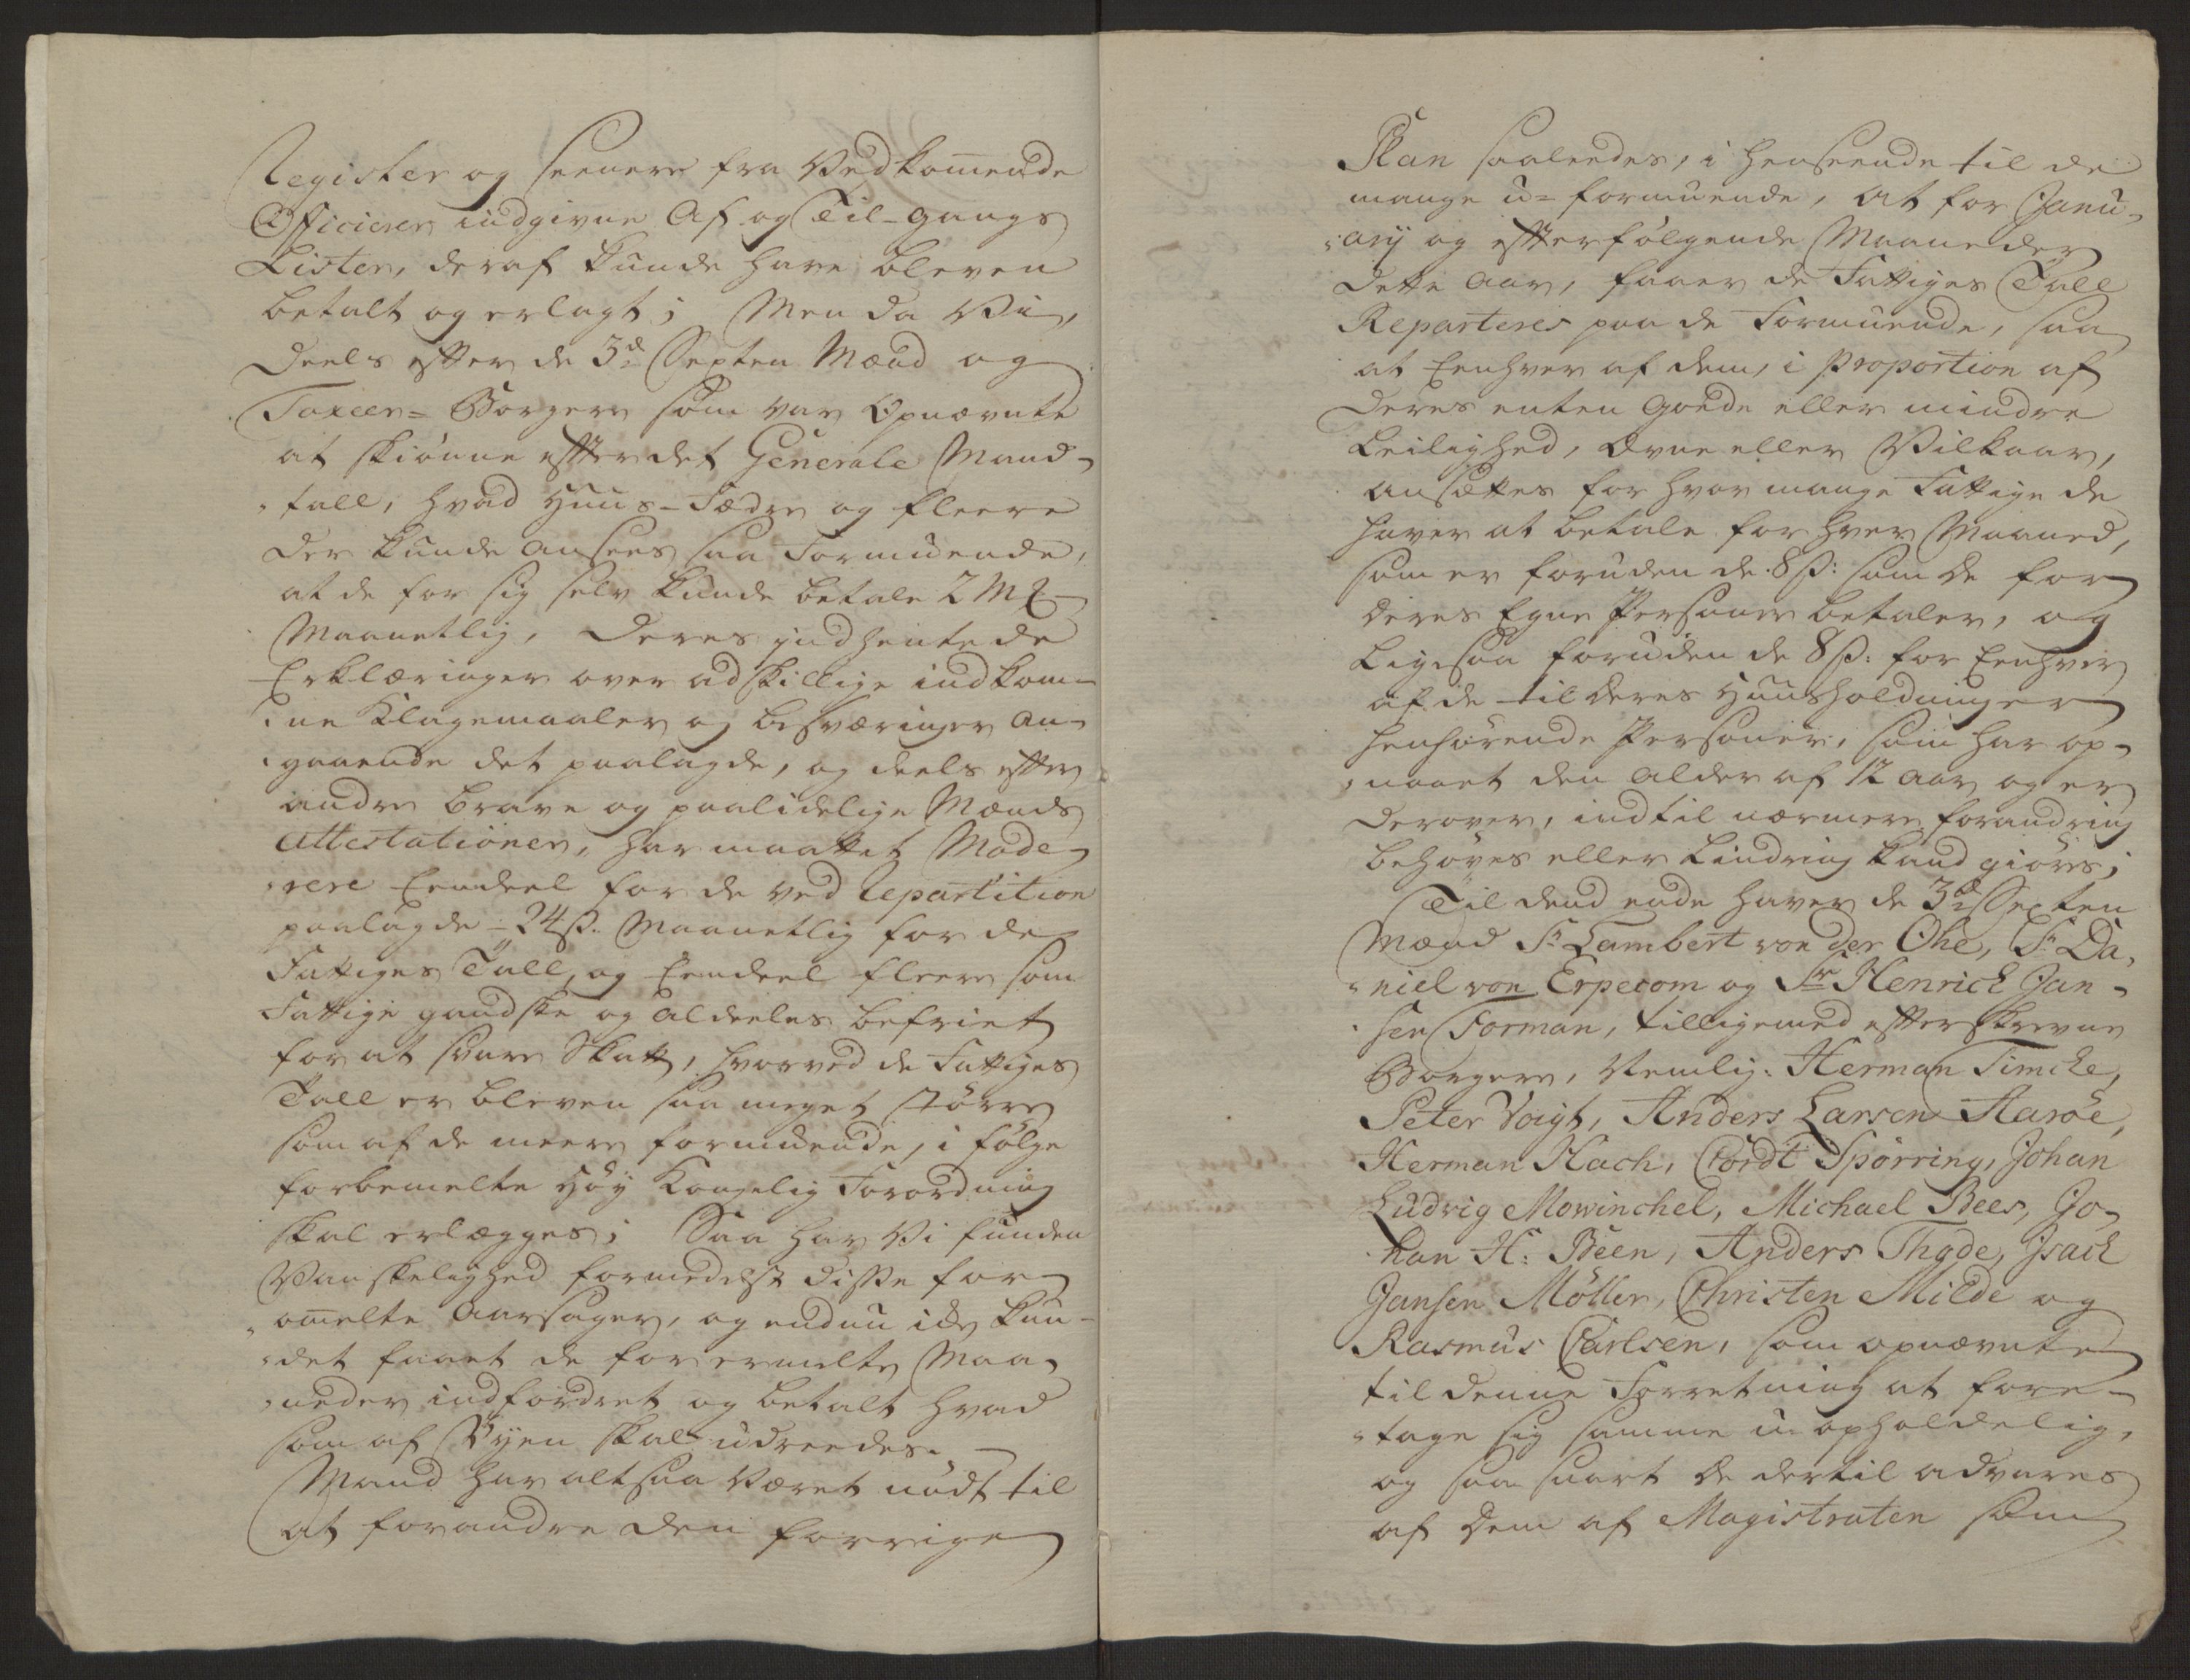 Register og seenere fra Vedkom̄ende
Officierer indgivne Af og Til-gangs
Lister, deraf kunde have bleven
betalt og erlagt; Men da Vi,
deels efter de 3de Sexten Mænd og
Taxeer=Borgere som var Opnævnte
at skiönne efter det Generale Mand-
tall, hvad Huus-Fædre og fleere
der kunde ansees saa Formuende,
at de for sig selv kunde betale 2 Mk
Maanetlig, deres indhentede
Erklæringer over adskillige indkom-
ne Klagemaaler og besværinger an-
gaaende det paalagde, og deels efter
andre brave og paalidelige Mænds
Attestationer, har maattet Mode-
rere Eendeel for de ved Repartition
paalagde - 24 ß. Maanetlig for de
Fattiges Tall, og Eendeel fleere som
Fattige gandske og aldeeles befriet
for at svare Skatt, hvorved de Fattiges
Tall er bleven saa meget större
som af de meere formuende, i fölge
forbemelte Höy Kongelig Forordning
skal erlægges; Saa har Vi funden
Vanskelighed formedelst disse for
om̄elte Aarsager, og endnu icke kun-
det faaet de for ermelte Maa-
neder indfordret og betalt hvad
som af Byen skal udreedes.
Mand har altsaa været nödt til
at forandre den forrige
Plan saaledes, i henseende til de
mange u=formuende, at for Janu-
arij og efterfölgende Maaneder
dette aar, faaer de Fattiges Tall
Reparteres paa de Formuende, saa
at Eenhver af dem, i proportion af
deres enten goede eller mindre
Leilighed, Evne eller Vilkaar,
ansættes for hvor mange Fattige de
haver at betale for hver Maaned,
som er foruden de 8 ß: som de for
deres Egne Personer betaler, og
Ligesaa foruden de 8 ß: for Eenhver
af de til deres Huusholdninger
henhörende Personer, som har op-
naaet den alder af 12 aar og er
derover, indtil nærmere forandring
behöves eller Lindring kand giöres;
Til dend ende haver de 3de Sexten
Mænd Sr Lambert von der Ohe, Sr Da-
niel von Erpecom og Sr Henrich Jan-
sen Forman, tilligemed efterskrevne
Borgere, Nemlig: Herman Timcke,
Peter Voigt, Anders Larsen Aaröe,
Herman Hach, Cordt Spörring, Johan
Ludvig Mowinchel, Michael Bees, Jo-
han H: Been, Anders Thode, Isach
Jansen Möller, Christen Milde og
Rasmus Carlsen, som opnævnte
til denne Forretning at fore-
tage sig samme u-opholdelig,
og saa snart de dertil advares
af dem af Magistraten som